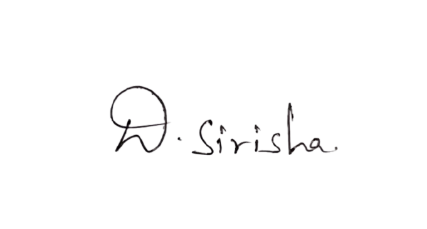 D. Sirisha.